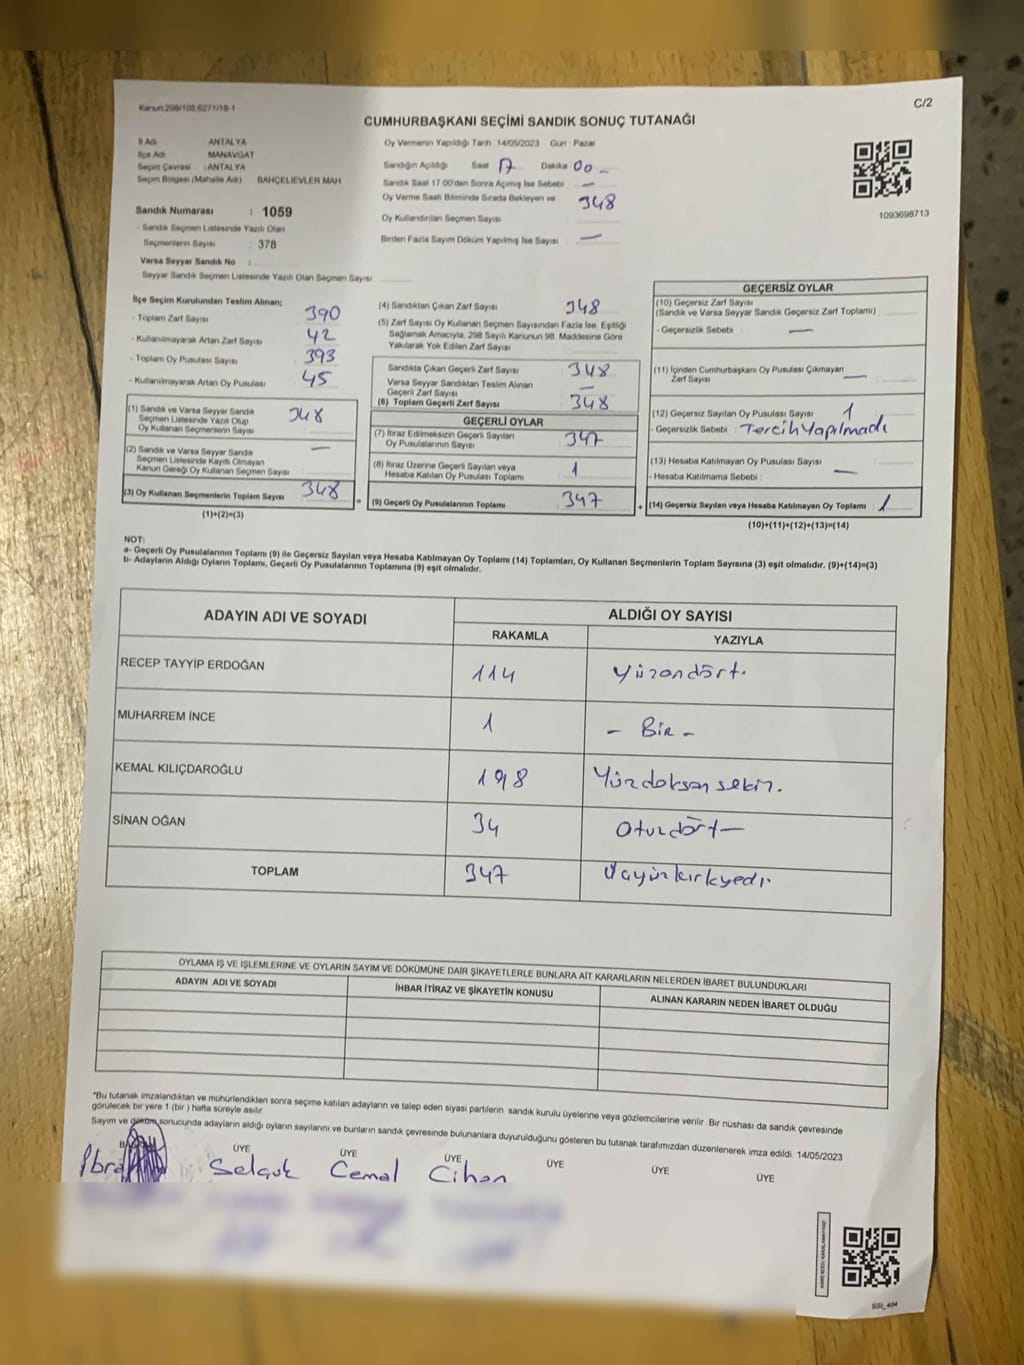 Kanun:298/105,6271/18-1
C/2
CUMHURBAŞKANI SEÇİMİ SANDIK SONUÇ TUTANAĞI
İl Adı ANTALYA
İlçe Adı MANAVGAT
Seçim Çevresi : ANTALYA
Seçim Bölgesi (Mahalle Adı) BAHÇELİEVLER MAH
Sandık Numarası : 1059
- Sandık Seçmen Listesinde Yazılı Olan
Seçmenlerin Sayısı : 378
Varsa Seyyar Sandık No :
- Seyyar Sandık Seçmen Listesinde Yazılı Olan Seçmen Sayısı:
Oy Vermenin Yapıldığı Tarih 14/05/2023 Gün : Pazar
Sandığın Açıldığı Saat 17 Dakika 00 -
Sandık Saat 17:00'den Sonra Açımış İse Sebebi —
Oy Verme Saati Bitiminde Sırada Bekleyen ve 348
Oy Kullandırılan Seçmen Sayısı
Birden Fazla Sayım Döküm Yapılmış İse Sayısı : —
1093698713
İlçe Seçim Kurulundan Teslim Alınan;
- Toplam Zarf Sayısı 390
- Kullanılmayarak Artan Zarf Sayısı 42
- Toplam Oy Pusulası Sayısı 393
- Kullanılmayarak Artan Oy Pusulası 45
(1) Sandık ve Varsa Seyyar Sandık 348
Seçmen Listesinde Yazılı Olup
Oy Kullanan Seçmenlerin Sayısı
(2) Sandık ve Varsa Seyyar Sandık —
Seçmen Listesinde Kayıtlı Olmayan
Kanun Gereği Oy Kullanan Seçmen Sayısı
(3) Oy Kullanan Seçmenlerin Toplam Sayısı 348
(1)+(2)=(3)
=
(4) Sandıktan Çıkan Zarf Sayısı 348
(5) Zarf Sayısı Oy Kullanan Seçmen Sayısından Fazla İse, Eşitliği
Sağlamak Amacıyla, 298 Sayılı Kanunun 98. Maddesine Göre
Yakılarak Yok Edilen Zarf Sayısı
Sandıkta Çıkan Geçerli Zarf Sayısı : 348
Varsa Seyyar Sandıktan Teslim Alınan —
Geçerli Zarf Sayısı
(6) Toplam Geçerli Zarf Sayısı : 348
GEÇERLİ OYLAR
(7) İtiraz Edilmeksizin Geçerli Sayılan 347
Oy Pusulalarının Sayısı
(8) İtiraz Üzerine Geçerli Sayılan veya 1
Hesaba Katılan Oy Pusulası Toplamı
(9) Geçerli Oy Pusulalarının Toplamı 347
+
GEÇERSİZ OYLAR
(10) Geçersiz Zarf Sayısı
(Sandık ve Varsa Seyyar Sandık Geçersiz Zarf Toplamı) :
- Geçersizlik Sebebi : —
(11) İçinden Cumhurbaşkanı Oy Pusulası Çıkmayan —
Zarf Sayısı
(12) Geçersiz Sayılan Oy Pusulası Sayısı 1
- Geçersizlik Sebebi : Tercih Yapılmadı
(13) Hesaba Katılmayan Oy Pusulası Sayısı —
- Hesaba Katılmama Sebebi :
(14) Geçersiz Sayılan veya Hesaba Katılmayan Oy Toplamı : 1
(10)+(11)+(12)+(13)=(14)
NOT:
a- Geçerli Oy Pusulalarının Toplamı (9) ile Geçersiz Sayılan veya Hesaba Katılmayan Oy Toplamı (14) Toplamları, Oy Kullanan Seçmenlerin Toplam Sayısına (3) eşit olmalıdır. (9)+(14)=(3)
b- Adayların Aldığı Oyların Toplamı, Geçerli Oy Pusulalarının Toplamına (9) eşit olmalıdır.
ADAYIN ADI VE SOYADI ALDIĞI OY SAYISI
RAKAMLA YAZIYLA
RECEP TAYYİP ERDOĞAN 114 Yüzondört.
MUHARREM İNCE 1 - Bir -
KEMAL KILIÇDAROĞLU 198 Yüzdoksan sekiz.
SİNAN OĞAN 34 Otuzdört —
TOPLAM 347 Üçyüzkırkyedi
OYLAMA İŞ VE İŞLEMLERİNE VE OYLARIN SAYIM VE DÖKÜMÜNE DAİR ŞİKAYETLERLE BUNLARA AİT KARARLARIN NELERDEN İBARET BULUNDUKLARI
ADAYIN ADI VE SOYADI İHBAR İTİRAZ VE ŞİKAYETİN KONUSU ALINAN KARARIN NEDEN İBARET OLDUĞU
*Bu tutanak imzalandıktan ve mühürlendikten sonra seçime katılan adayların ve talep eden siyasi partilerin sandık kurulu üyelerine veya gözlemcilerine verilir. Bir nüshası da sandık çevresinde
görülecek bir yere 1 (bir ) hafta süreyle asılır.
Sayım ve döküm sonucunda adayların aldığı oyların sayılarını ve bunların sandık çevresinde bulunanlara duyurulduğunu gösteren bu tutanak tarafımızdan düzenlenerek imza edildi. 14/05/2023
ÜYE ÜYE ÜYE ÜYE ÜYE ÜYE
Selçuk Cemal Cihan
SSI_404